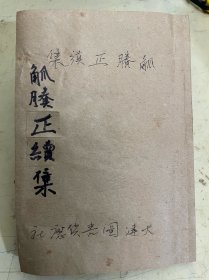 觚賸正續集
觚賸正續集
大達圖書供應社